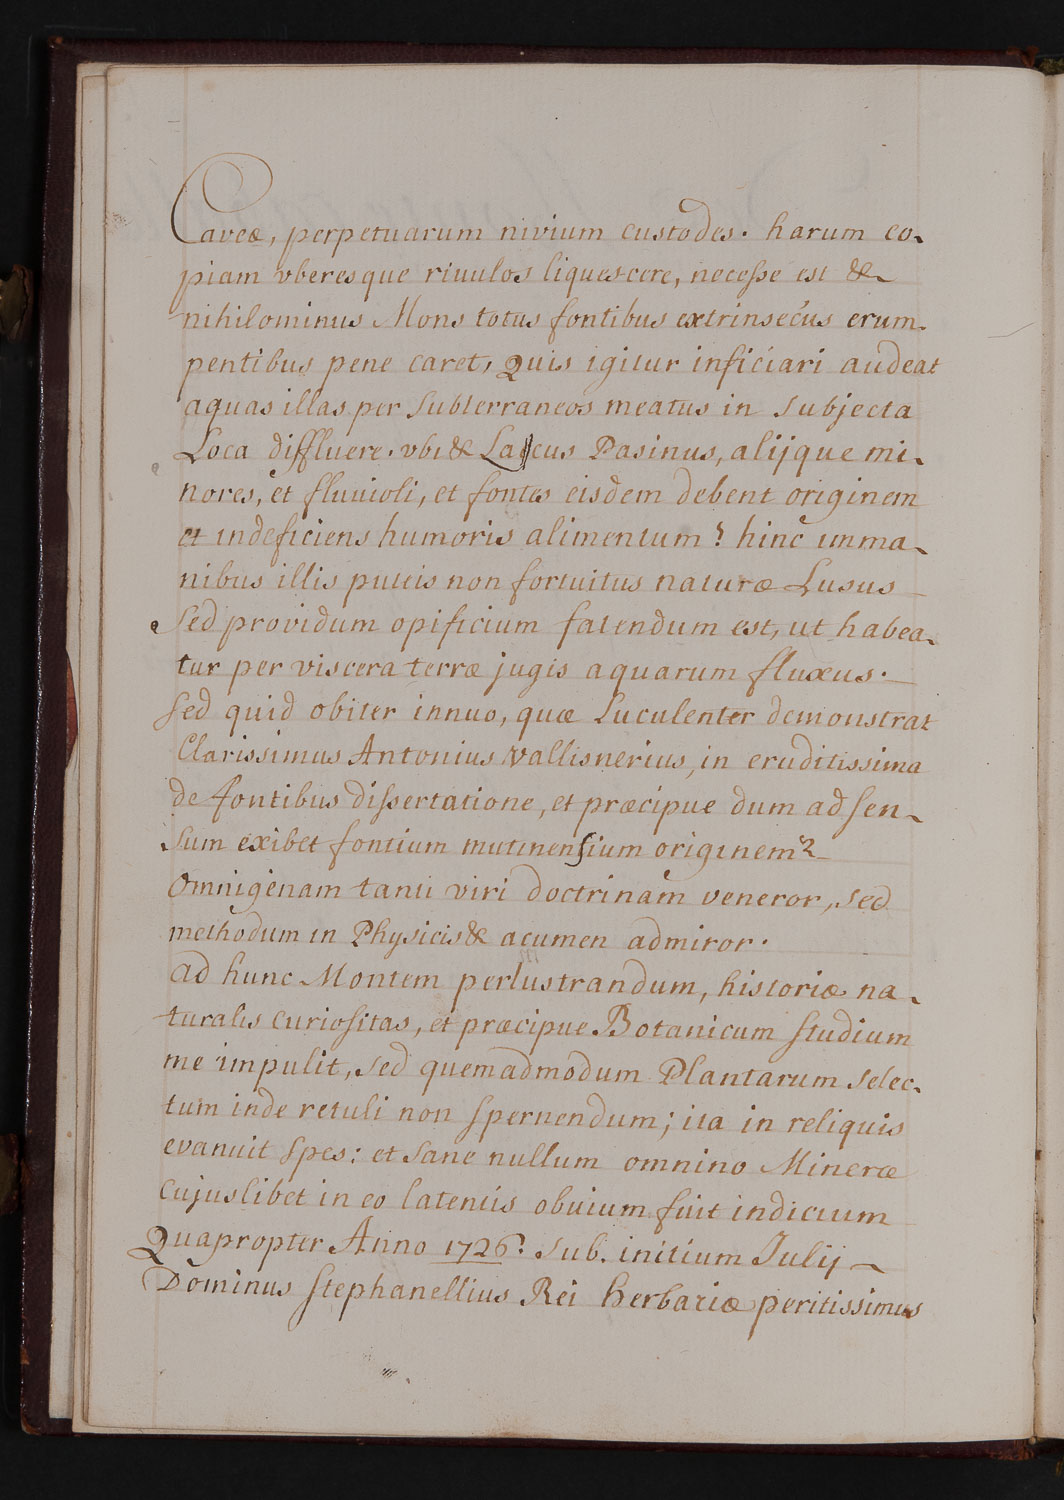 Caveæ, perpetuarum nivium custodes. harum co-
piam vberesque riuulos liquescere, necesse est &
nihilominus Mons totus fontibus extrinsecùs erum-
pentibus pene caret, Quis igitur inficiari audeat
aquas illas per subterraneos meatus in subjecta
Loca diffluere. vbi & Lacus Pasinus, alijque mi-
nores, et fluuioli, et fontes eisdem debent originem
et indeficiens humoris alimentum? hinc inma-
nibus illis puteis non fortuitus naturæ Lusus
sed providum opificium fatendum est, ut habea-
tur per viscera terræ jugis aquarum fluxus.
sed quid obiter innuo, quæ Luculenter demonstrat
Clarissimus Antonius Vallisnerius, in eruditissima
de fontibus dissertatione, et præcipue dum ad sen-
sum exibet fontium mutinensium originem?
Omnigenam tanti viri doctrinam veneror, sed
methodum in Physicis & acumen admiror.
ad hunc Montem perlustrandum, historiæ na-
turalis curiositas, et præcipue Botanicum studium
me impulit, sed quemadmodum Plantarum selec-
tum inde retuli non spernendum; ita in reliquis
evanuit spes: et sane nullum omnino Mineræ
cujuslibet in eo latentis obuium fuit indicium
Quapropter Anno 1726. sub. initium Julij
Dominus stephanellius Rei herbariæ peritissimus